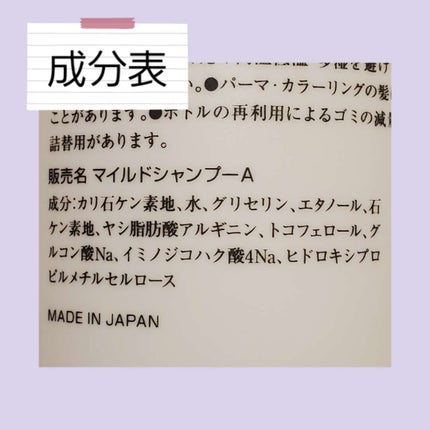 成分表
を避け
い。●パーマ・カラーリングの髪
ことがあります。●ボトルの再利用によるゴミの減
詰替用があります。
販売名 マイルドシャンプーA
成分:カリ石ケン素地、水、グリセリン、エタノール、石
ケン素地、ヤシ脂肪酸アルギニン、トコフェロール、グ
ルコン酸Na、イミノジコハク酸4Na、ヒドロキシプロ
ピルメチルセルロース
MADE IN JAPAN